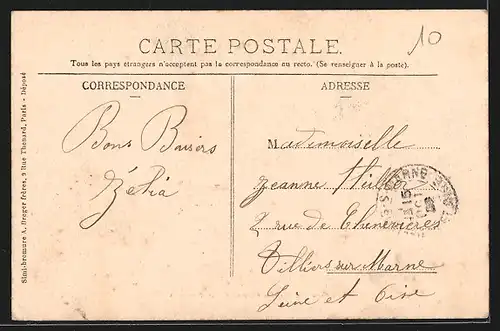 10
CARTE POSTALE.
Tous les pays étrangers n'acceptent pas la correspondance au recto. (Se renseigner à la poste).
CORRESPONDANCE
ADRESSE
Simi-bromure A. Breger frères, 9 Rue Thenard, Paris - Déposé
Bons Baisers
Mademoiselle
Jeanne
2 rue de Chenevières
Villiers sur Marne
Seine et Oise
MARNE
15